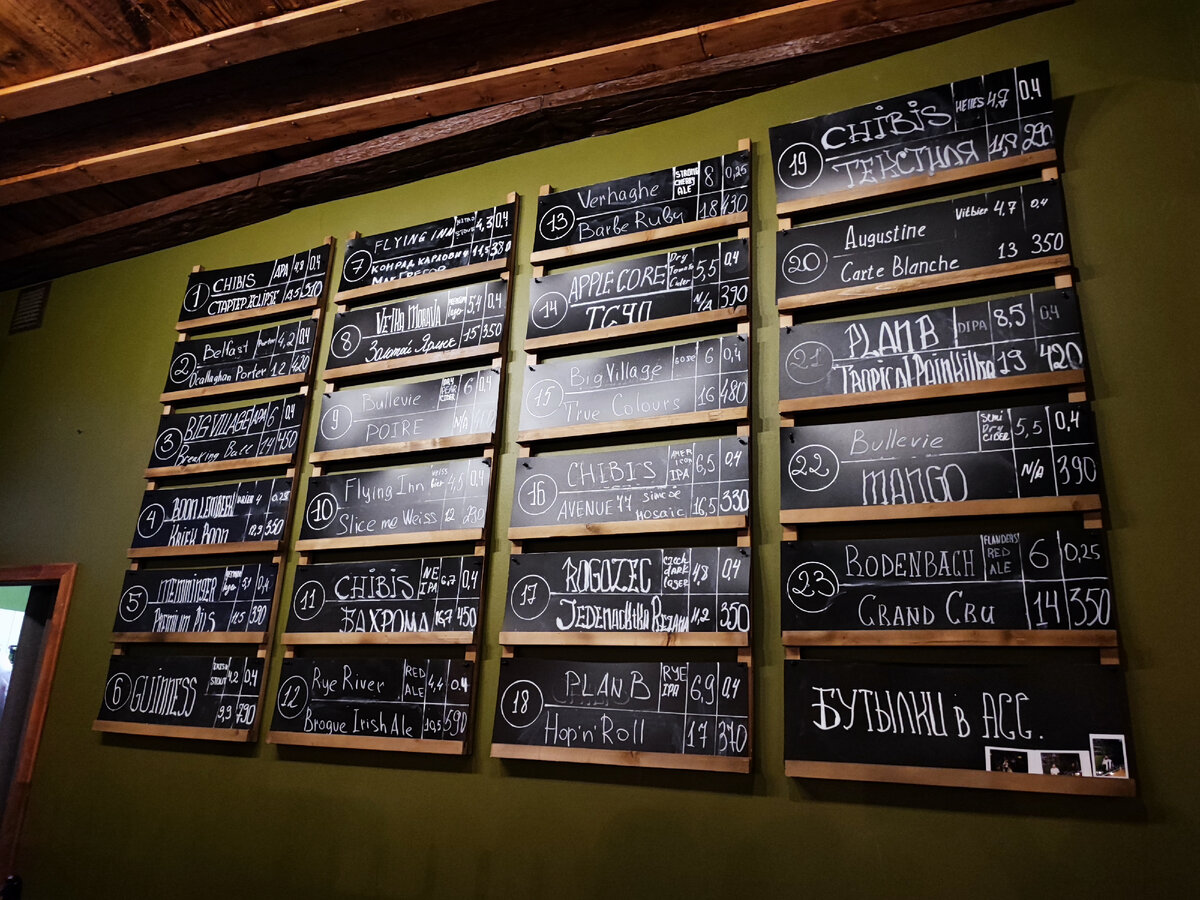 1 CHIBIS APA 4,8 0,4
СТАРТЕР ECLIPSE
2 Belfast 4,2 0,4
Ocallaghan Porter 12 420
3 BIG VILLAGE APA 6 0,4
Breaking Ball 14 450
4 BOON LEMBEEK 4
Kriek Boon 350
5 MEMMINGER 0,4
PREMIUM PILS 390
6 GUINNESS 4,2 0,4
790
7 FLYING INN NITRO STOUT 4,3 0,4
КОНРАД КАРЛОВИЧ 11,5 380
MACGREGOR
8 Velka Morava lager 5,4 0,4
Золотой Ярлык 15 350
9 Bullevie DRY PEAR CIDER 6 0,4
POIRE N/A
10 Flying Inn weiss bier 4,5 0,4
Slice me Weiss 12 290
11 CHIBIS NE IPA 6,7 0,4
БАХРОМА 16,7 450
12 Rye River RED ALE 4,4 0,4
Brogue Irish Ale 10,5 590
13 Verhaghe STRONG CHERRY ALE 8 0,25
Barbe Ruby 18 430
14 APPLE CORE Dry Tomato Cider 5,5 0,4
TG40 N/A 390
15 Big Village GOSE 6 0,4
True Colours 16 480
16 CHIBIS AMERICAN IPA 6,5 0,4
AVENUE 77 simcoe mosaic 16,5 330
17 ROGOZEC Czech dark lager 4,8 0,4
11,2 350
18 PLAN B RYE IPA 6,9 0,4
Hop'n'Roll 17 370
19 CHIBIS HELLES 4,7 0,4
ТЕКСТИЛЯ 11,8 290
20 Augustine Vitbier 4,7 0,4
Carte Blanche 13 350
21 PLAN B DIPA 8,5 0,4
TROPICAL PAINKILLER 19 420
22 Bullevie SEMI DRY CIDER 5,5 0,4
MANGO N/A 390
23 RODENBACH FLANDERS RED ALE 6 0,25
GRAND CRU 14 350
БУТЫЛКИ в АСС.